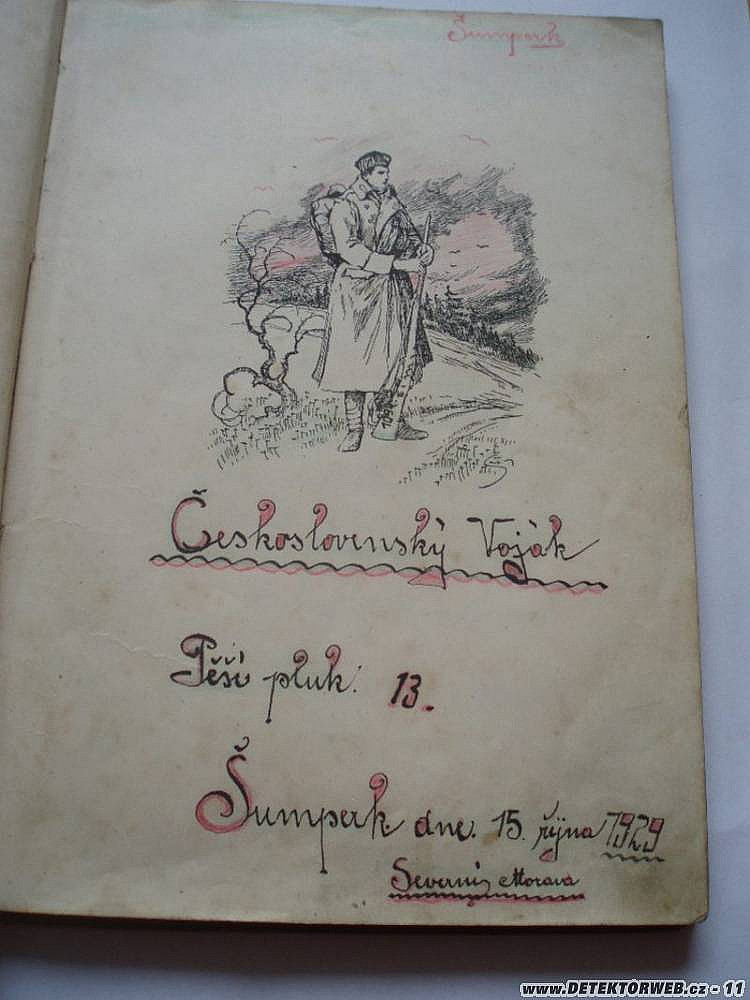 Šumperk
Československý Voják
Pěší pluk. 13.
Šumperk. dne. 15. října 1929
Severní Morava
www.DETEKTORWEB.cz - 11